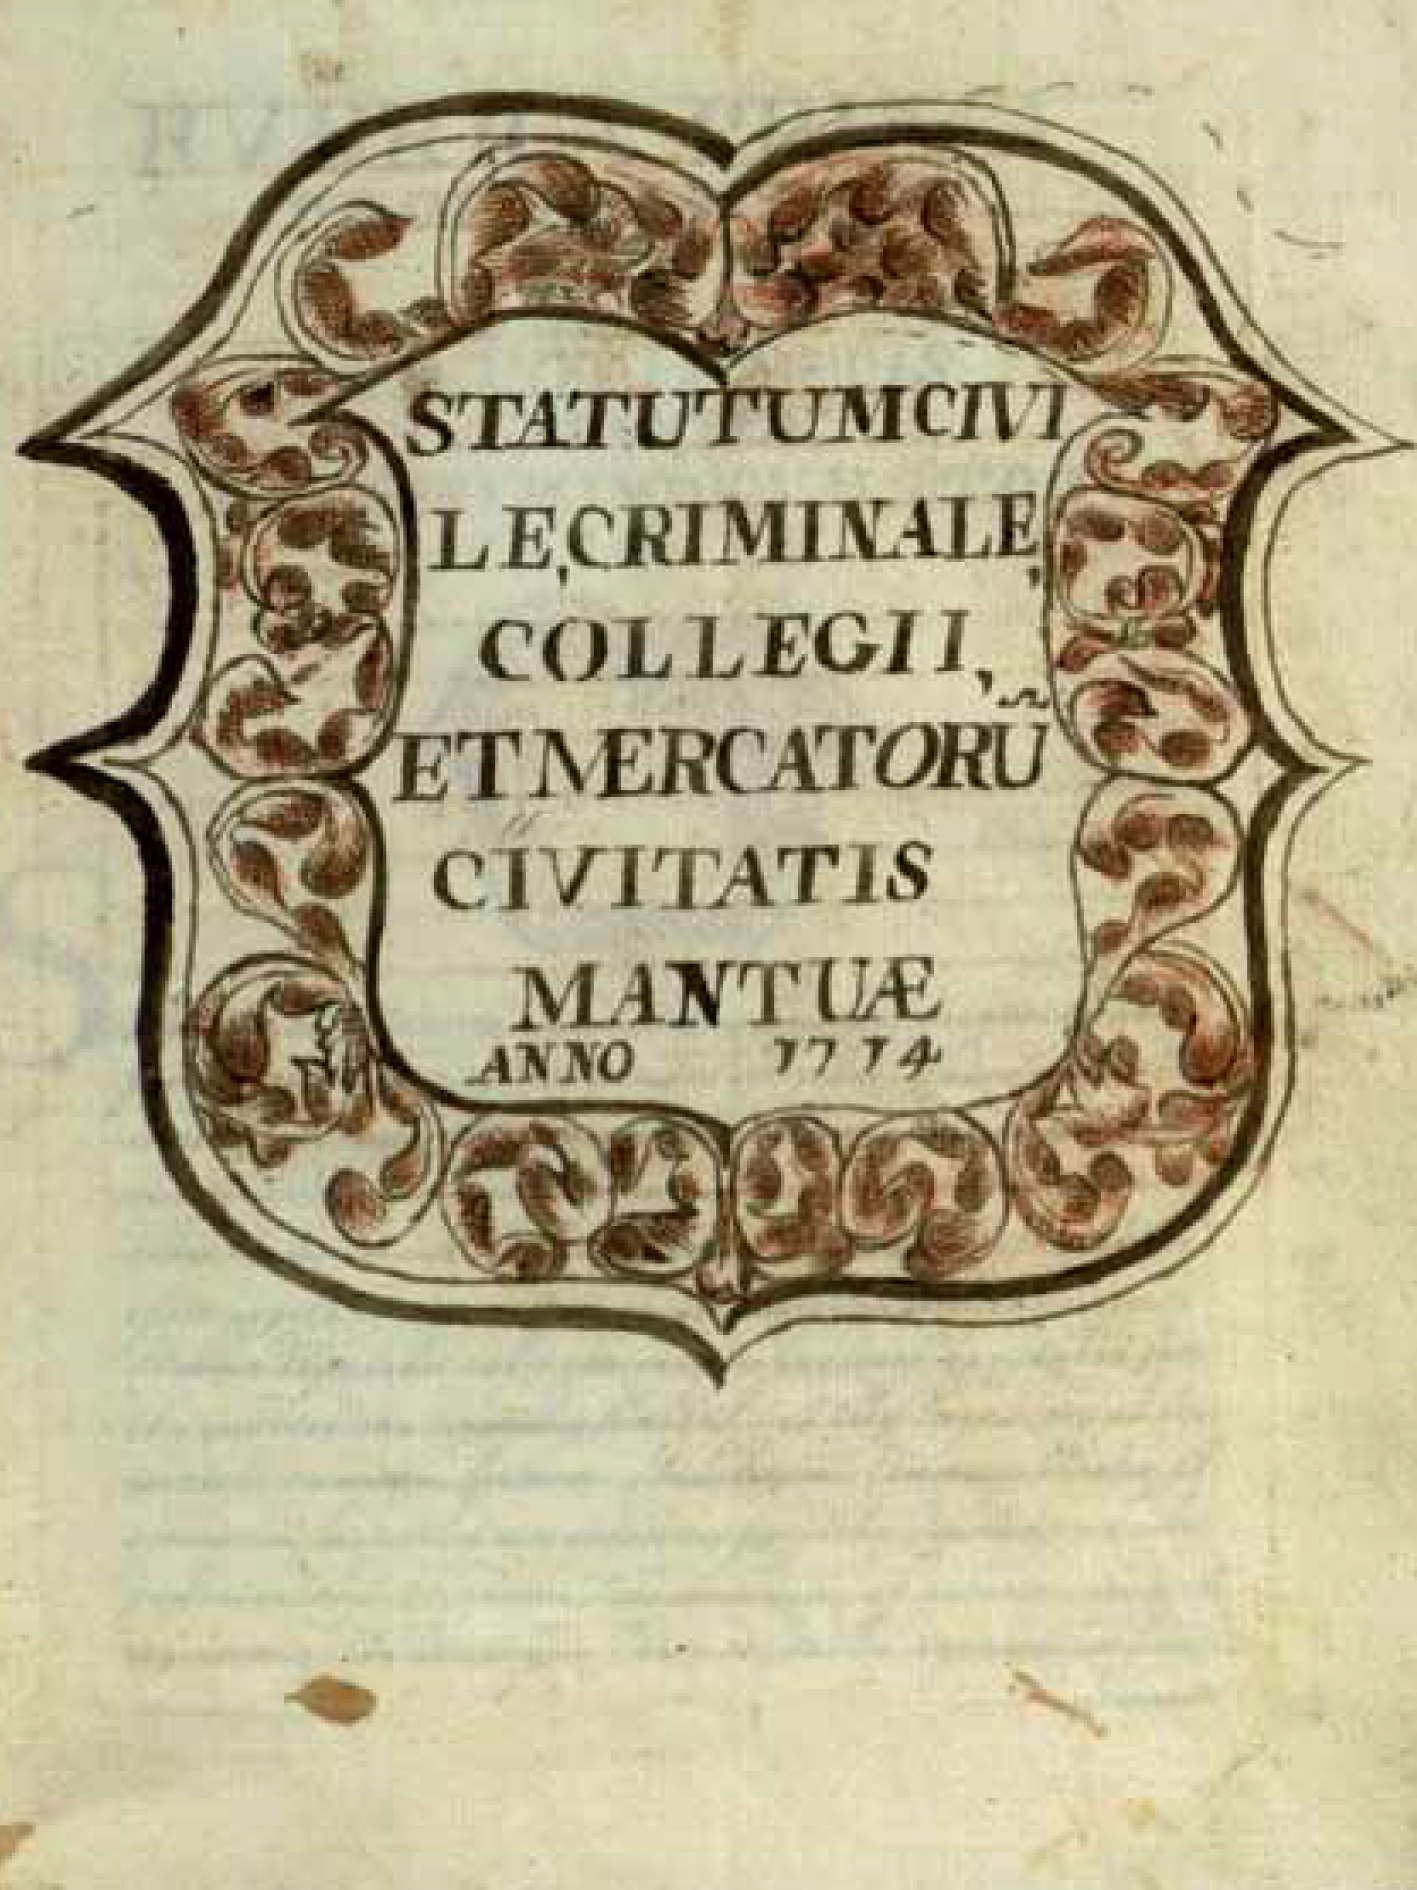 STATUTUM CIVI
LE, CRIMINALE,
COLLEGII,
ET MERCATORŨ
CIVITATIS
MANTUÆ
ANNO 1714